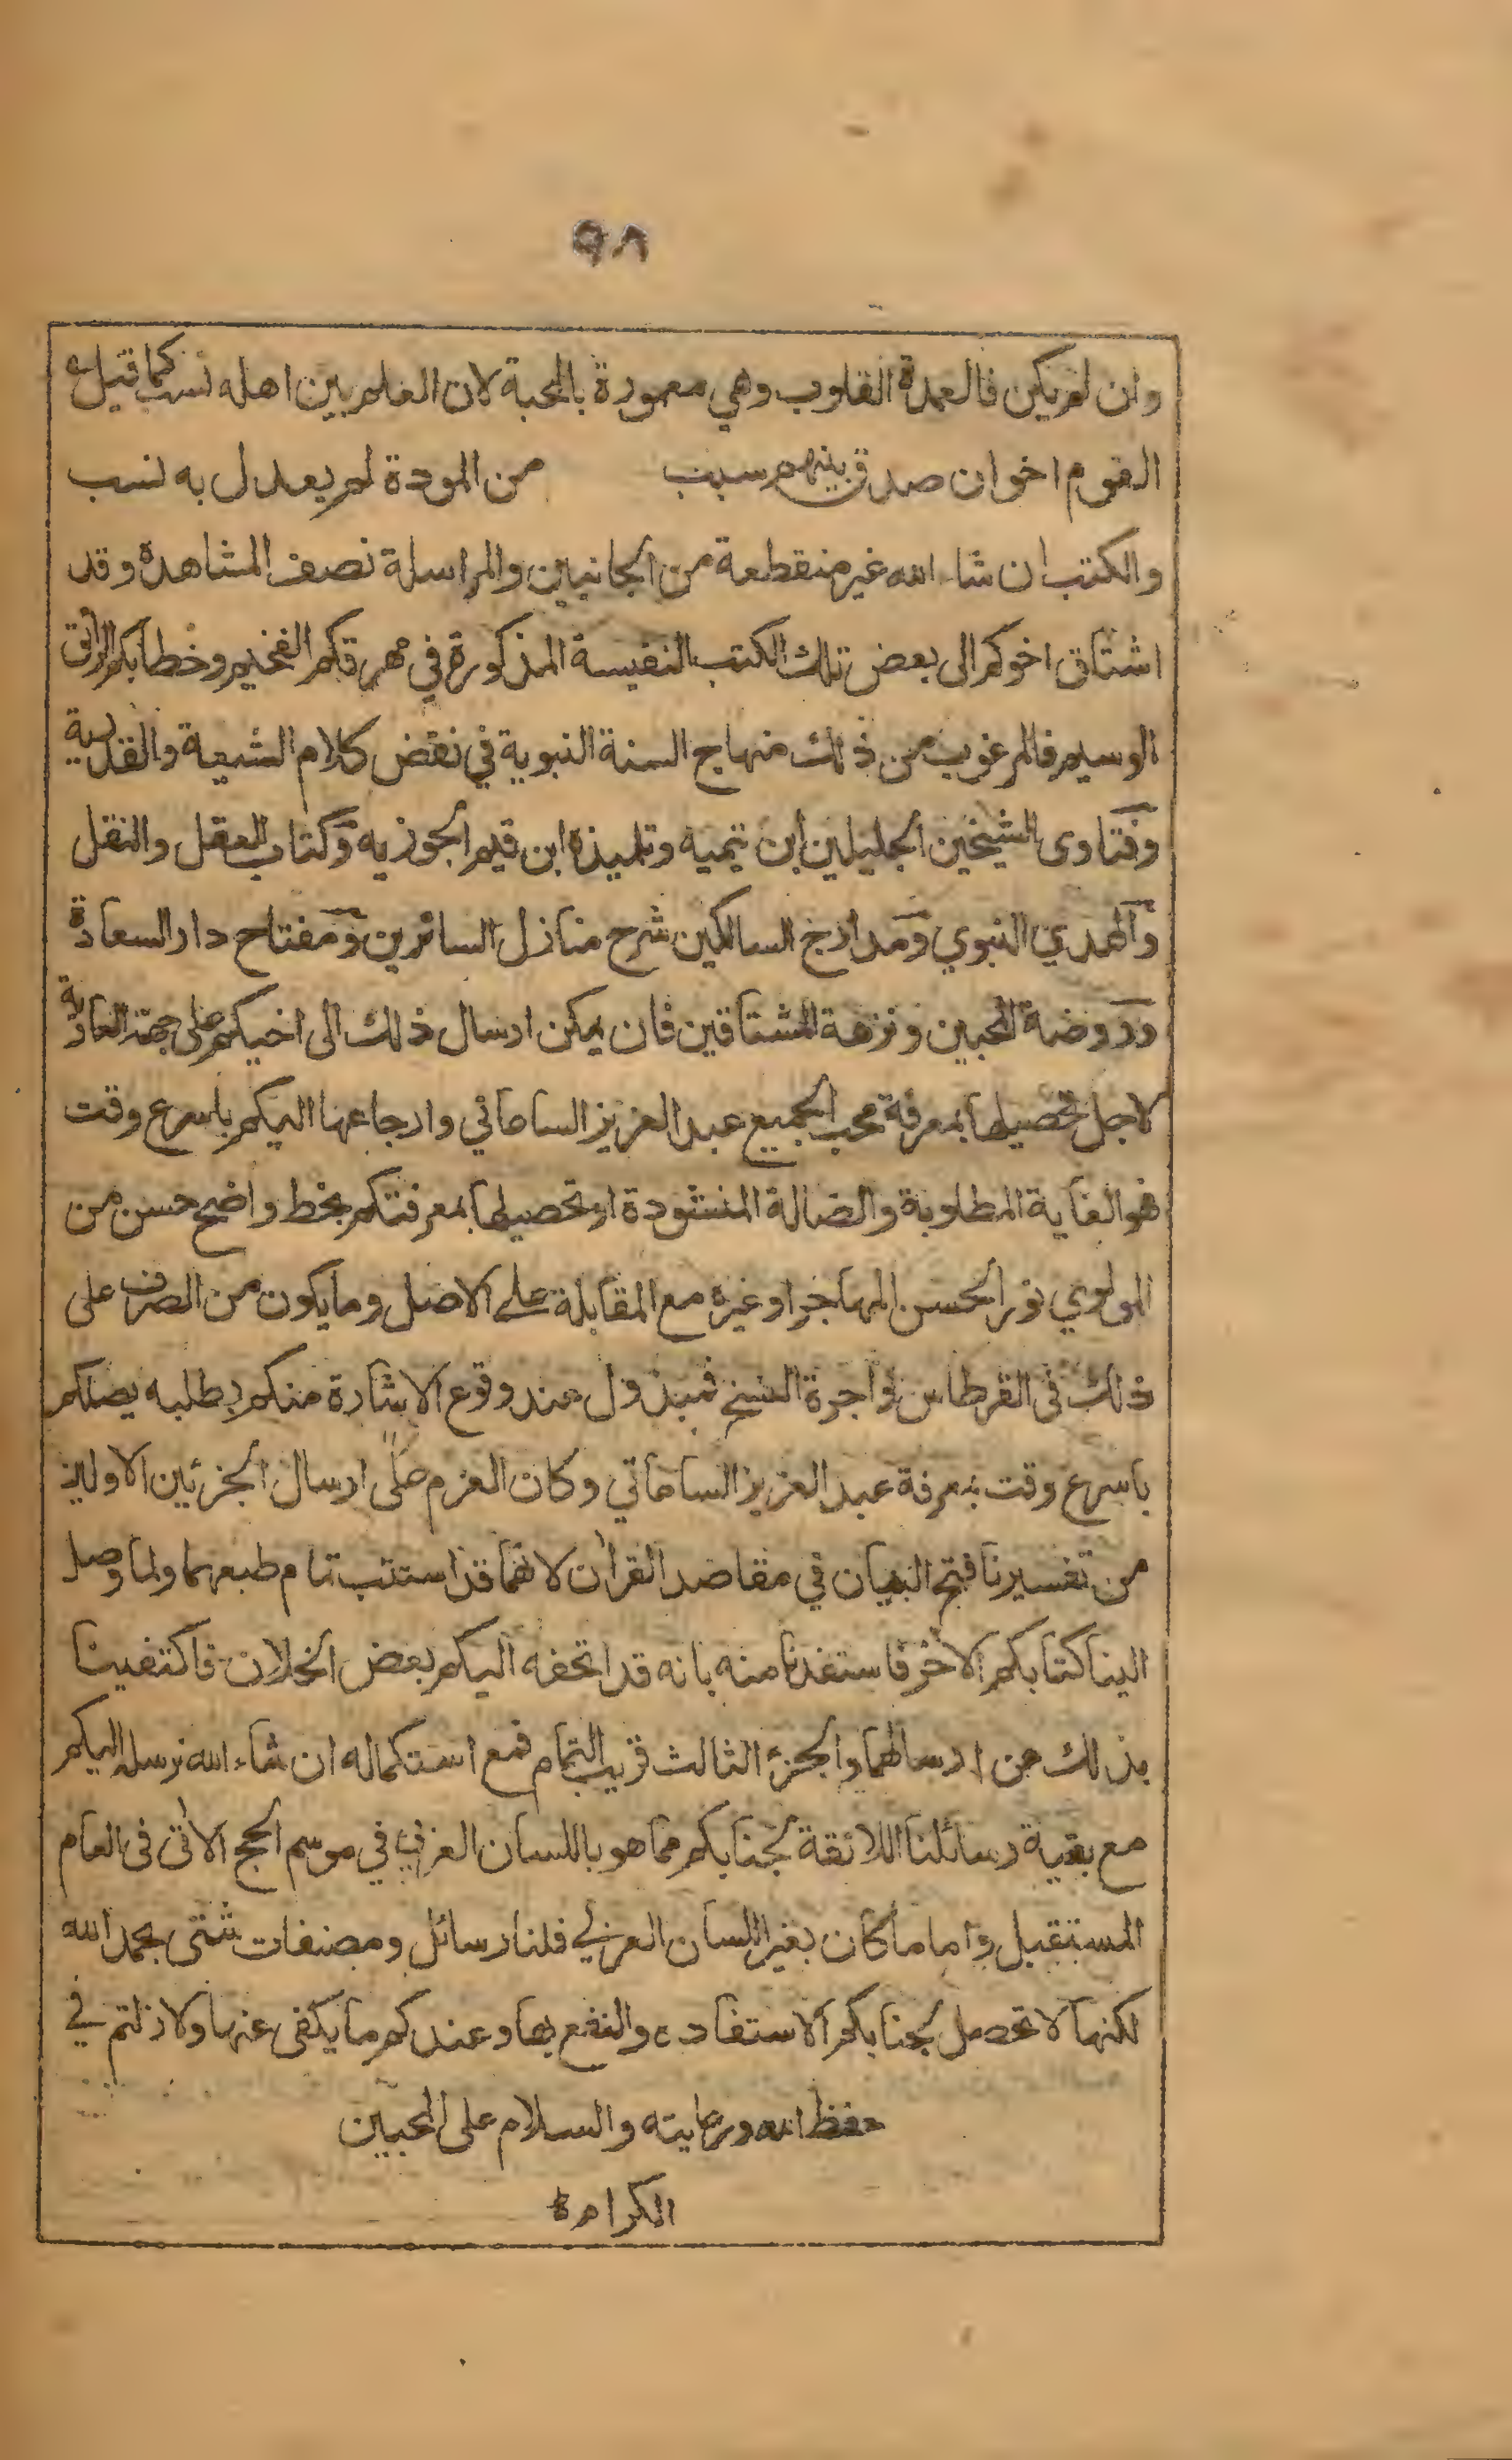 ٩٨
وان لم يكن فالعمدة القلوب وهي معمورة بالمحبة لان العلم بين اهله نسب كما قيل
القوم اخوان صدق بينهم سبب من المودة لم يعدل به نسب
والكتب ان شاء الله غير منقطعة من الجانبين والمراسلة نصف المشاهدة وقد
اشتاق اخوكم الى بعض تلك الكتب النفيسة المذكورة في مهرقكم الفخيم وخطابكم الرائق
الوسيم فالمرغوب من ذلك منهاج السنة النبوية في نقض كلام الشيعة والقدرية
وفتاوى الشيخين الجليلين ابن تيمية وتلميذه ابن قيم الجوزيه وكتاب العقل والنقل
والهدي النبوي ومدارج السالكين شرح منازل السائرين ومفتاح دار السعادة
وروضة المحبين ونزهة المشتاقين فان يمكن ارسال ذلك الى اخيكم على جهة العارية
لاجل تحصيلها بمعرفة محب الجميع عبد العزيز الساماني وارجاعها اليكم باسرع وقت
فهو الغاية المطلوبة والضالة المنشودة او تحصيلها بمعرفتكم بخط واضح حسن من
المولوي نور الحسن المهاجر او غيره مع المقابلة على الاصل وما يكون من الصرف على
ذلك في القرطاس واجرة النسخ فمبذول عند وقوع الاشارة منكم بطلبه يصلكم
باسرع وقت بمعرفة عبد العزيز الساماتي وكان العزم على ارسال الجزئين الاولين
من تفسيرنا فتح البيان في مقاصد القران لانهما قد استتب تمام طبعهما ولما وصل
الينا كتابكم الاخر فاستفدنا منه بانه قد اتحفه اليكم بعض الخلان فاكتفينا
بذلك عن ارسالهما والجزء الثالث قريب التمام فمع استكماله ان شاء الله نرسله اليكم
مع بقية رسائلنا اللائقة بجنابكم مما هو باللسان العربي في موسم الحج الاتى فى العام
المستقبل واما ما كان بغير اللسان العربي فلنا رسائل ومصنفات شتى بحمد الله
لكنها لا تحصل لجنابكم الاستفادة والنفع بها وعندكم ما يكفى عنها ولا زلتم في
حفظ الله ورعايته والسلام على المحبين
الكرام ة